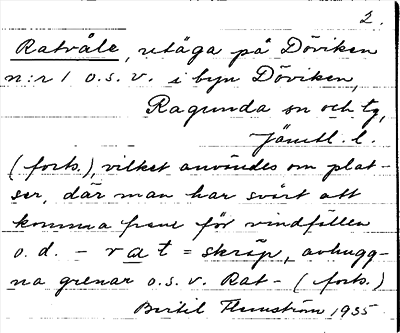 2.
Ratvåle, utäga på Döviken
n:r 1 o.s.v. i byn Döviken,
Ragunda sn och tg,
Jämtl. l.
(forts.), vilket användes om plat-
ser, där man har svårt att
komma fram för vindfällen
o.d. – rat = skräp, avhugg-
na grenar o.s.v. Rat- (forts.)
Bertil Flemström 1935